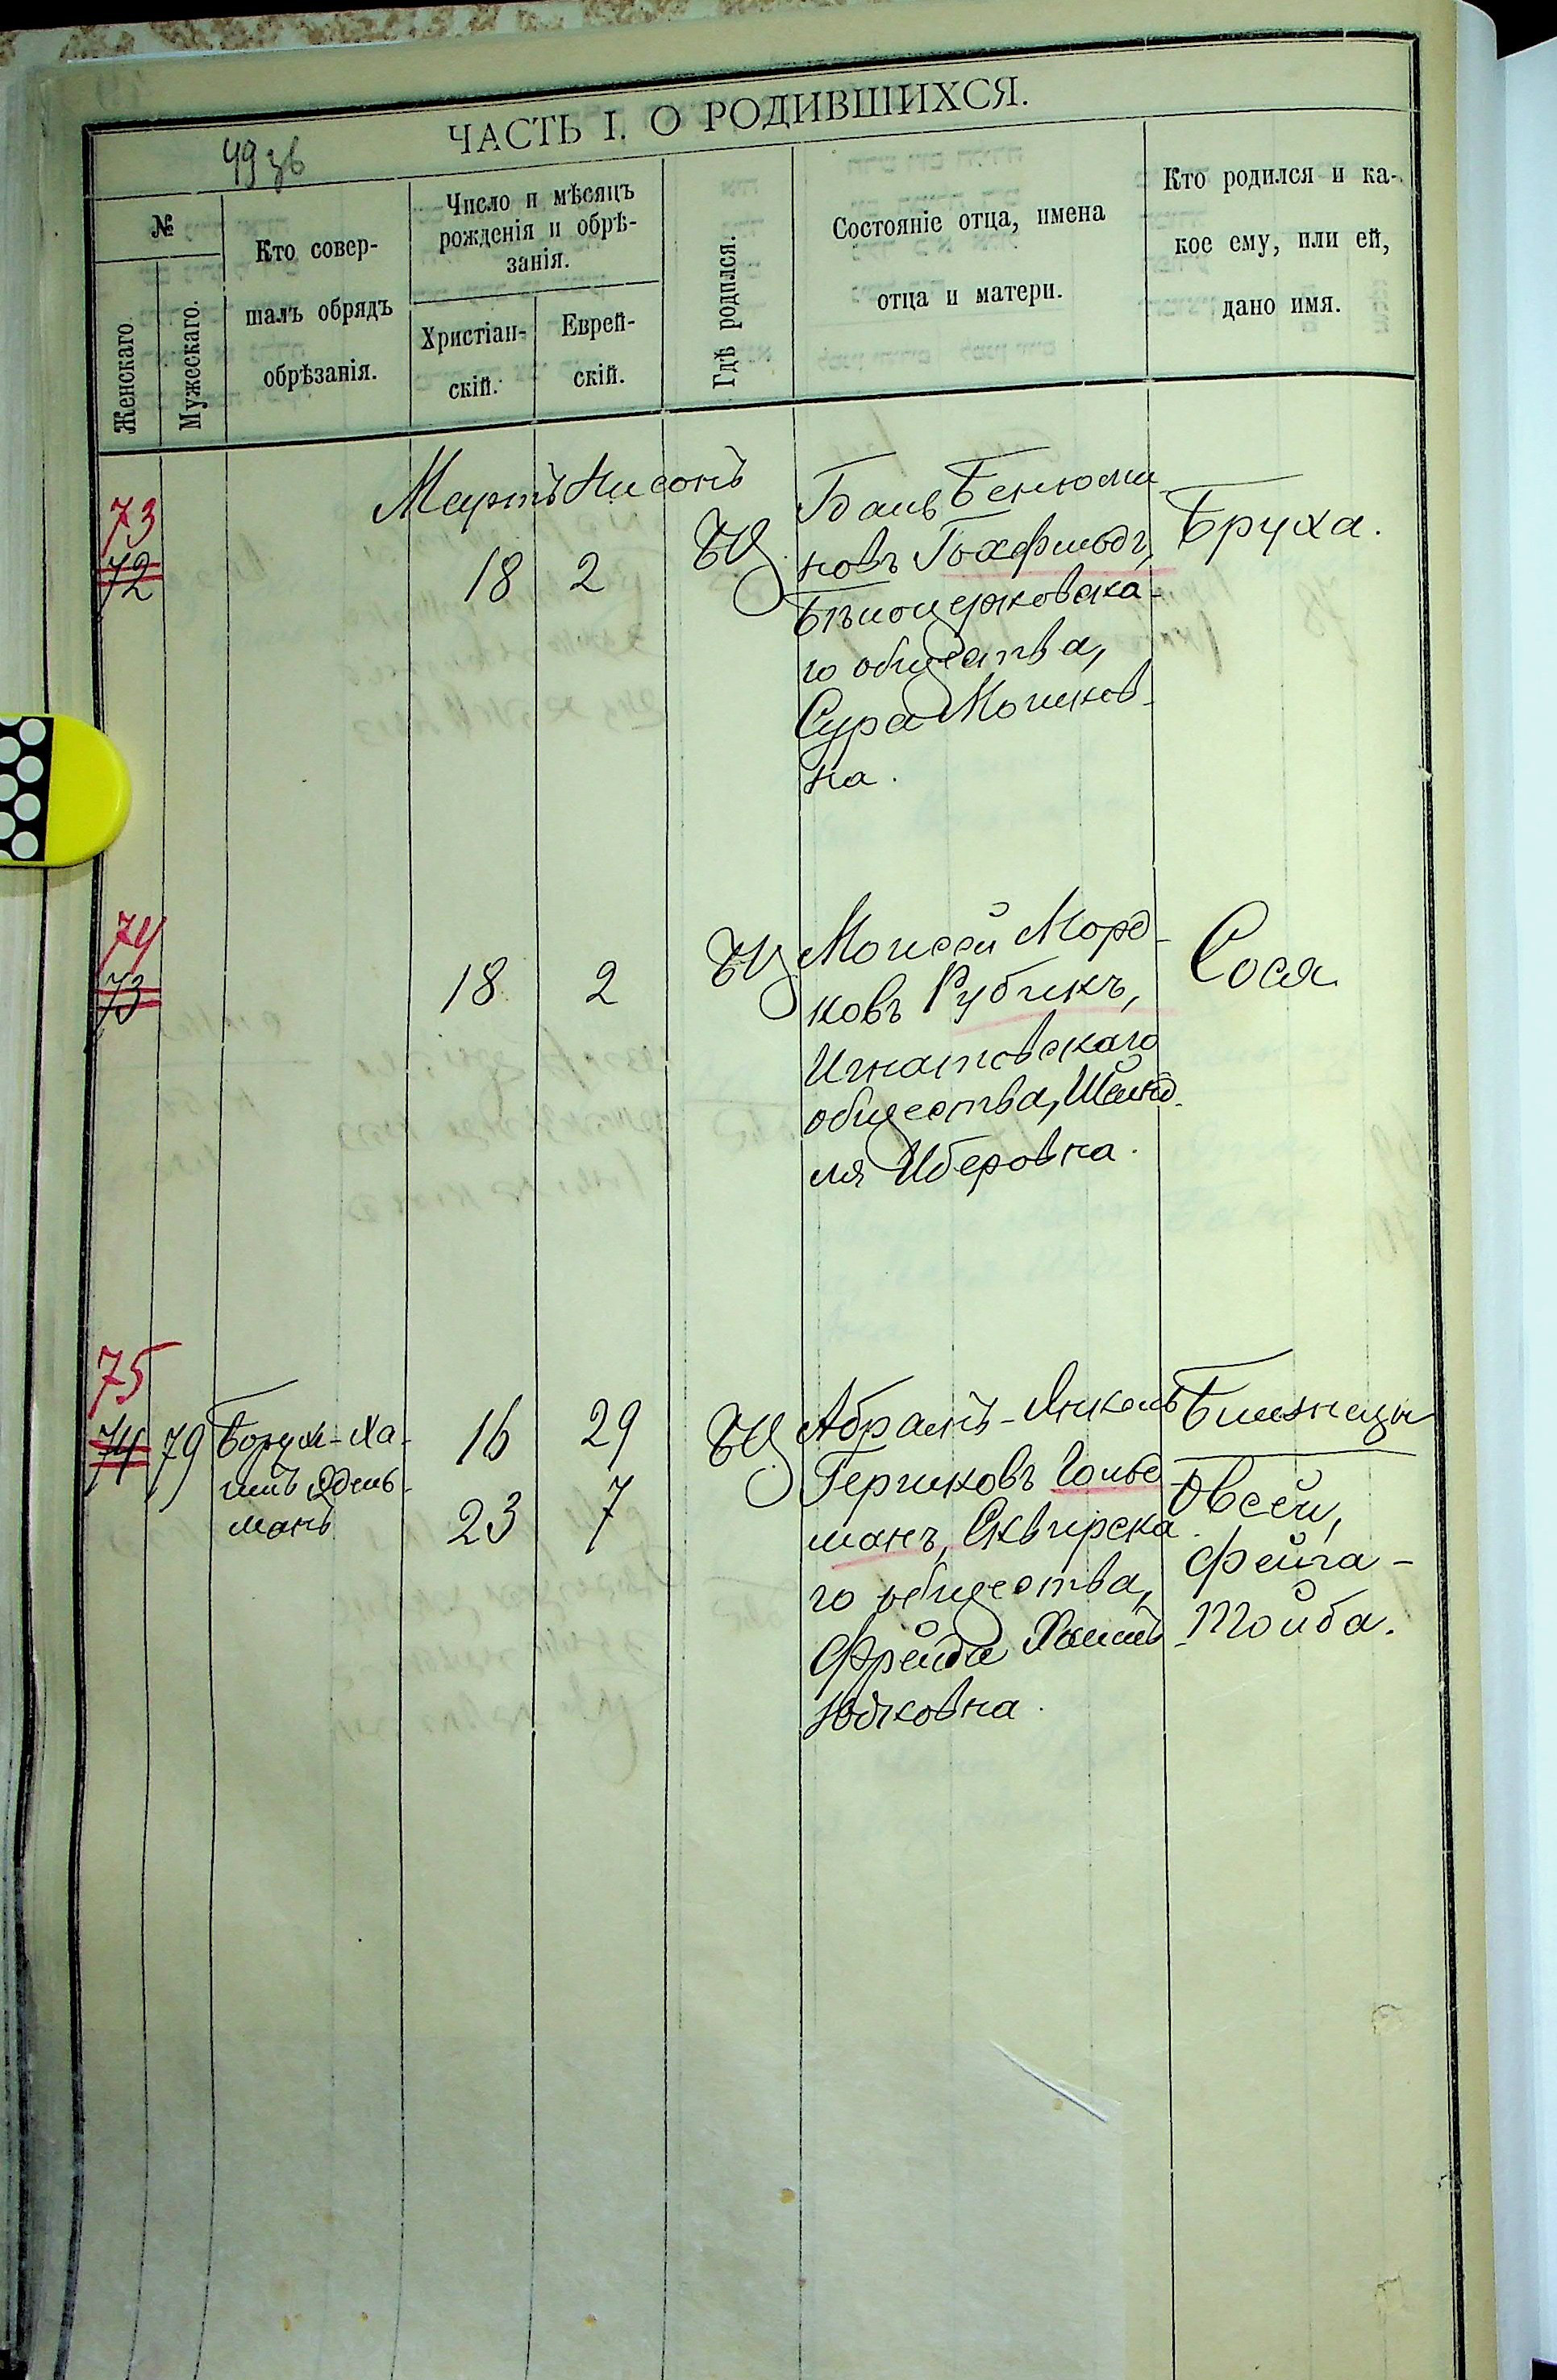 49 зв
ЧАСТЬ I. О РОДИВШИХСЯ.
№
Женскаго.
Мужескаго.
Кто совер-
шалъ обрядъ
обрѣзанія.
Число и мѣсяцъ
рожденія и обрѣ-
занія.
Христіан-
скій.
Еврей-
скій.
Гдѣ родился.
Состояніе отца, имена
отца и матери.
Кто родился и ка-
кое ему, или ей,
дано имя.
Мартъ Нисонъ
73
72
18
2
БЦ
Беніоми
новъ Гохфельдъ,
Бѣлоцерковска-
го общества,
Сура Мошков-
на.
Бруха.
74
73
18
2
БЦ
Моисей Морд-
ковъ Рубикъ,
Игнатовскаго
общества, Шейнд-
ля Иберовна.
Сося
75
74
79
Борух-Ха-
имъ Эдель-
манъ
16
29
23
7
БЦ
Абрамъ-Янкель
Гершковъ Гольд
манъ, Сквирска-
го общества,
Фрейда Хаимъ-
Юдковна.
Близнецы
Овсей,
Фейга-
Тойба.